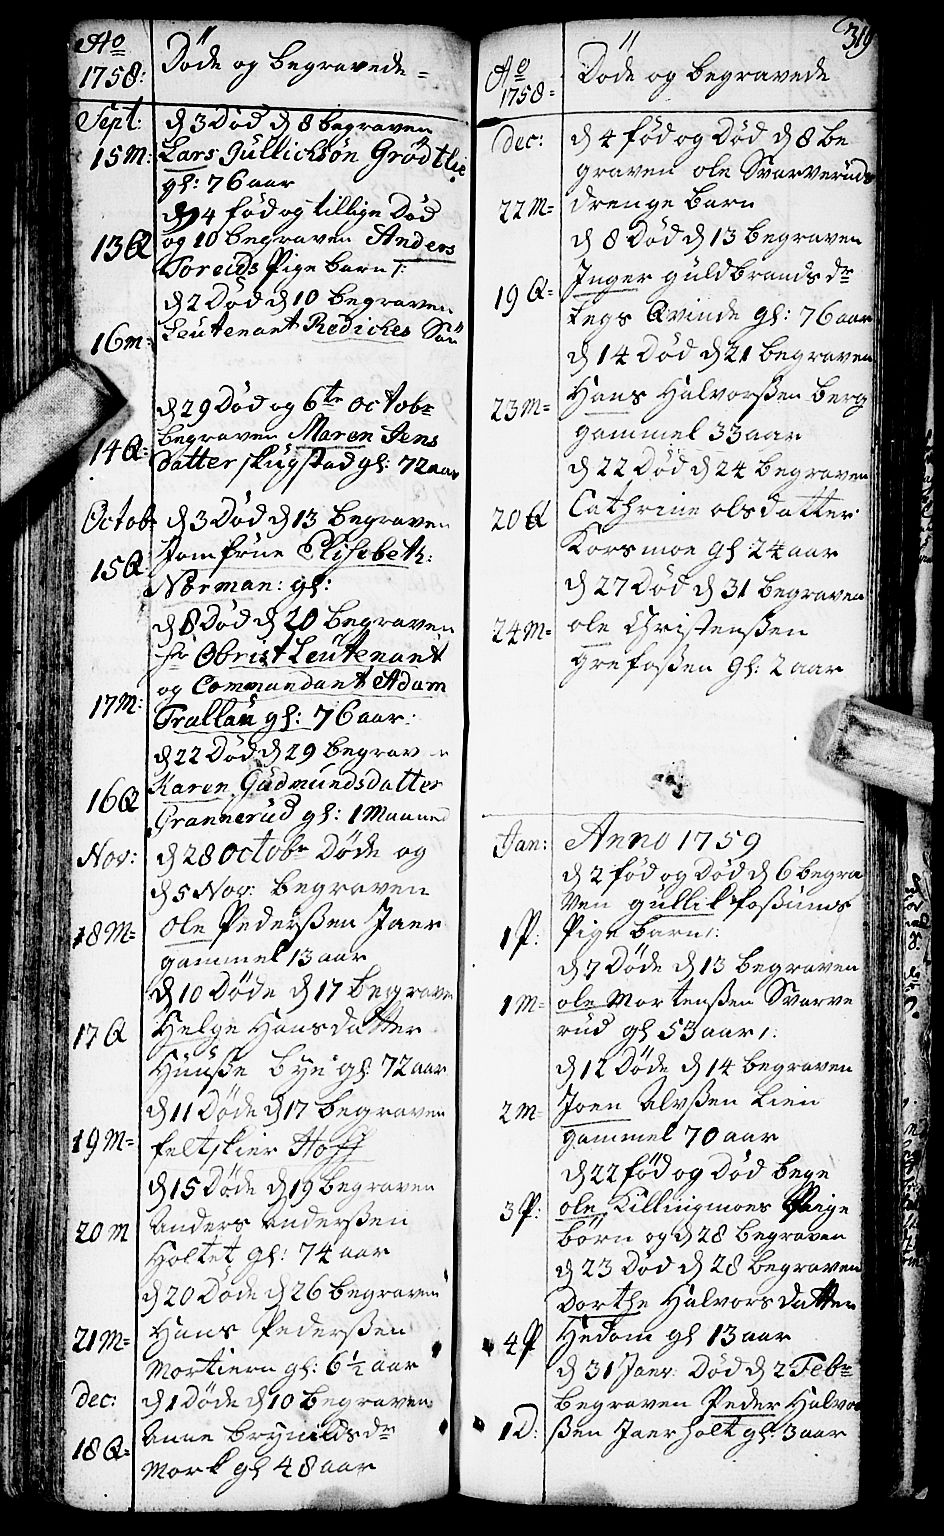 Ao
1758: Döde og begravede =
Sept: d 3 Död d 8 begraven
15 M: Lars Gullichsön Grödtlie
gl: 76 aar
d 4 född og tillige Död
13 Q og 10 begraven Anders
Toreids Pige barn /:
d 2 Död d 10 begraven
16 m: Leutenant Rediches Sön
d 29 Död og 6te Octobr
begraven Maren Jens
14 Q= datter skugstad gl: 72 aar
Octob: d 3 Död d 13 begraven
Jomfrue Elisebeth:
15 Q: Norman: gl:
d 8 Död d 20 begraven
hr Obrist Leutenant
og Commandant Adam
17 M: Frallau gl: 76 aar:
d 22 Död d 29 begraven
Karen Gudmundsdatter
16 Q Grannerud gl: 1 Maaned
Nov: d 28 octobr Döde og
d 5 Nov: begraven
18 M= Ole Pederssen Jaer
gammel 13 aar
d 10 Döde d 17 begraven
17 Q Helge Hansdatter
Huusse bye gl: 72 aar
d 11 Döde d 17 begraven
19 M= feltskier Hoff
d 15 Döde d 19 begraven
20 m Anders Anderssen
Holtet gl: 74 aar
d 20 Döde d 26 begraven
21 M= Hans Pederssen
Mortiern gl: 6 1/2 aar
Dec: d 1 Döde d 10 begraven
18 Q= Anne brynildsdr
Mork gl 48 aar
319
Ao
1758= Döde og begravede
Dec: d 4 fød og Død d 8 be
graven ole Svarveruds
22 M= drenge barn
d 8 Død d 13 begraven
19 Q= Inger guldbrandsdr
Legs Qvinde gl: 76 aar
d 14 Død d 21 begraven
23 M= Hans Halvorssen berg
gammel 33 aar
d 22 Død d 24 begraven
20 Q Cathrine olsdatter
Korsmoe gl: 24 aar
d 27 Død d 31 begraven
24 M= ole Christenssen
grefossen gl: 2 aar
Jan: Anno 1759
d 2 fød og Død d 6 begra
ven gullik fossums
1 P: Pige barn /:
d 7 Døde d 13 begraven
1 M= ole Mortenssen Svarve
rud gl 53 aar /:
d 12 Døde d 14 begraven
2 m= Joen Alvssen Lien
gammel 70 aar
d 22 fød og Død bege
3 P: ole Killingmoes Pige
børn og d 28 begraven
d 23 Død d 28 begraven
Dorthe Halvorsdatter
4 P Hedom gl 13 aar
d 31 Jaer: Død d 2 Febr
begraven Peder Halvor
1 D: ssen Jaer holt gl: 3 aar